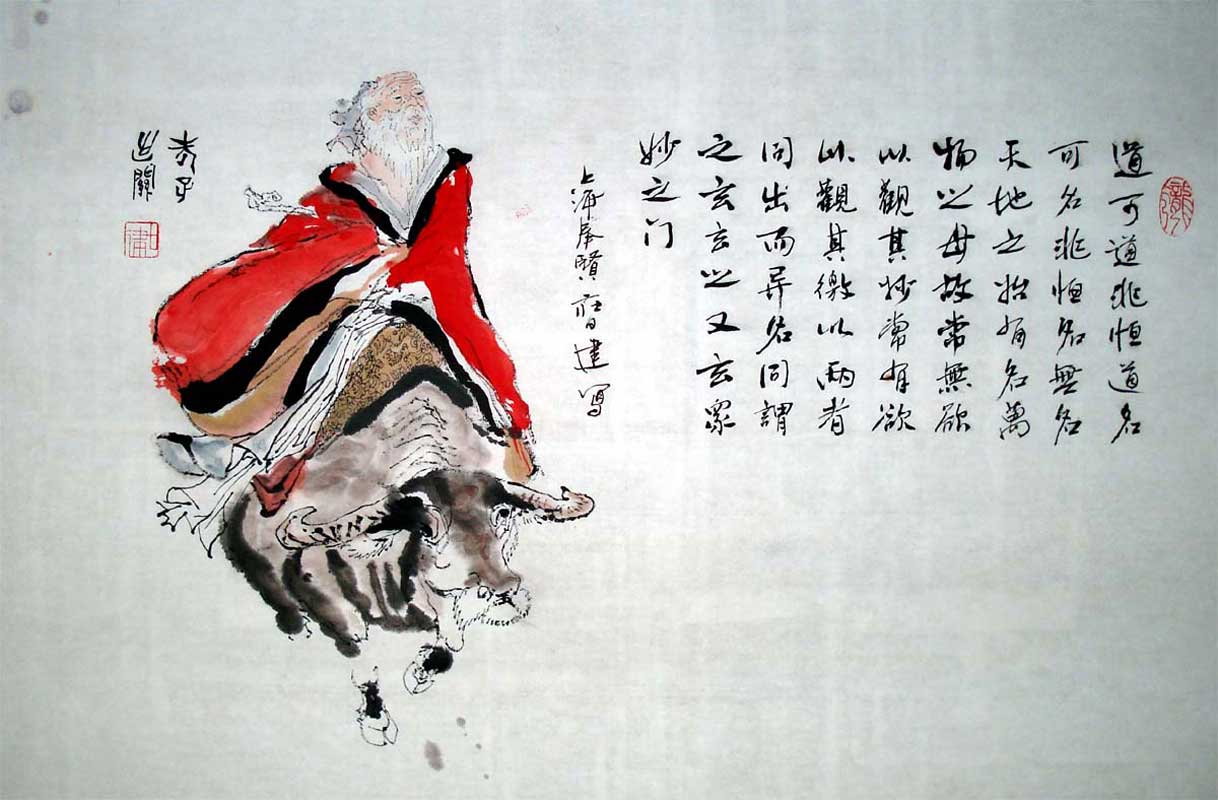 道可道非恒道名
可名非恒名無名
天地之始有名萬
物之母故常無欲
以觀其妙常有欲
以觀其徼以兩者
同出而异名同謂
之玄玄之又玄眾
妙之门
上海奉賢建寫
老子
出關